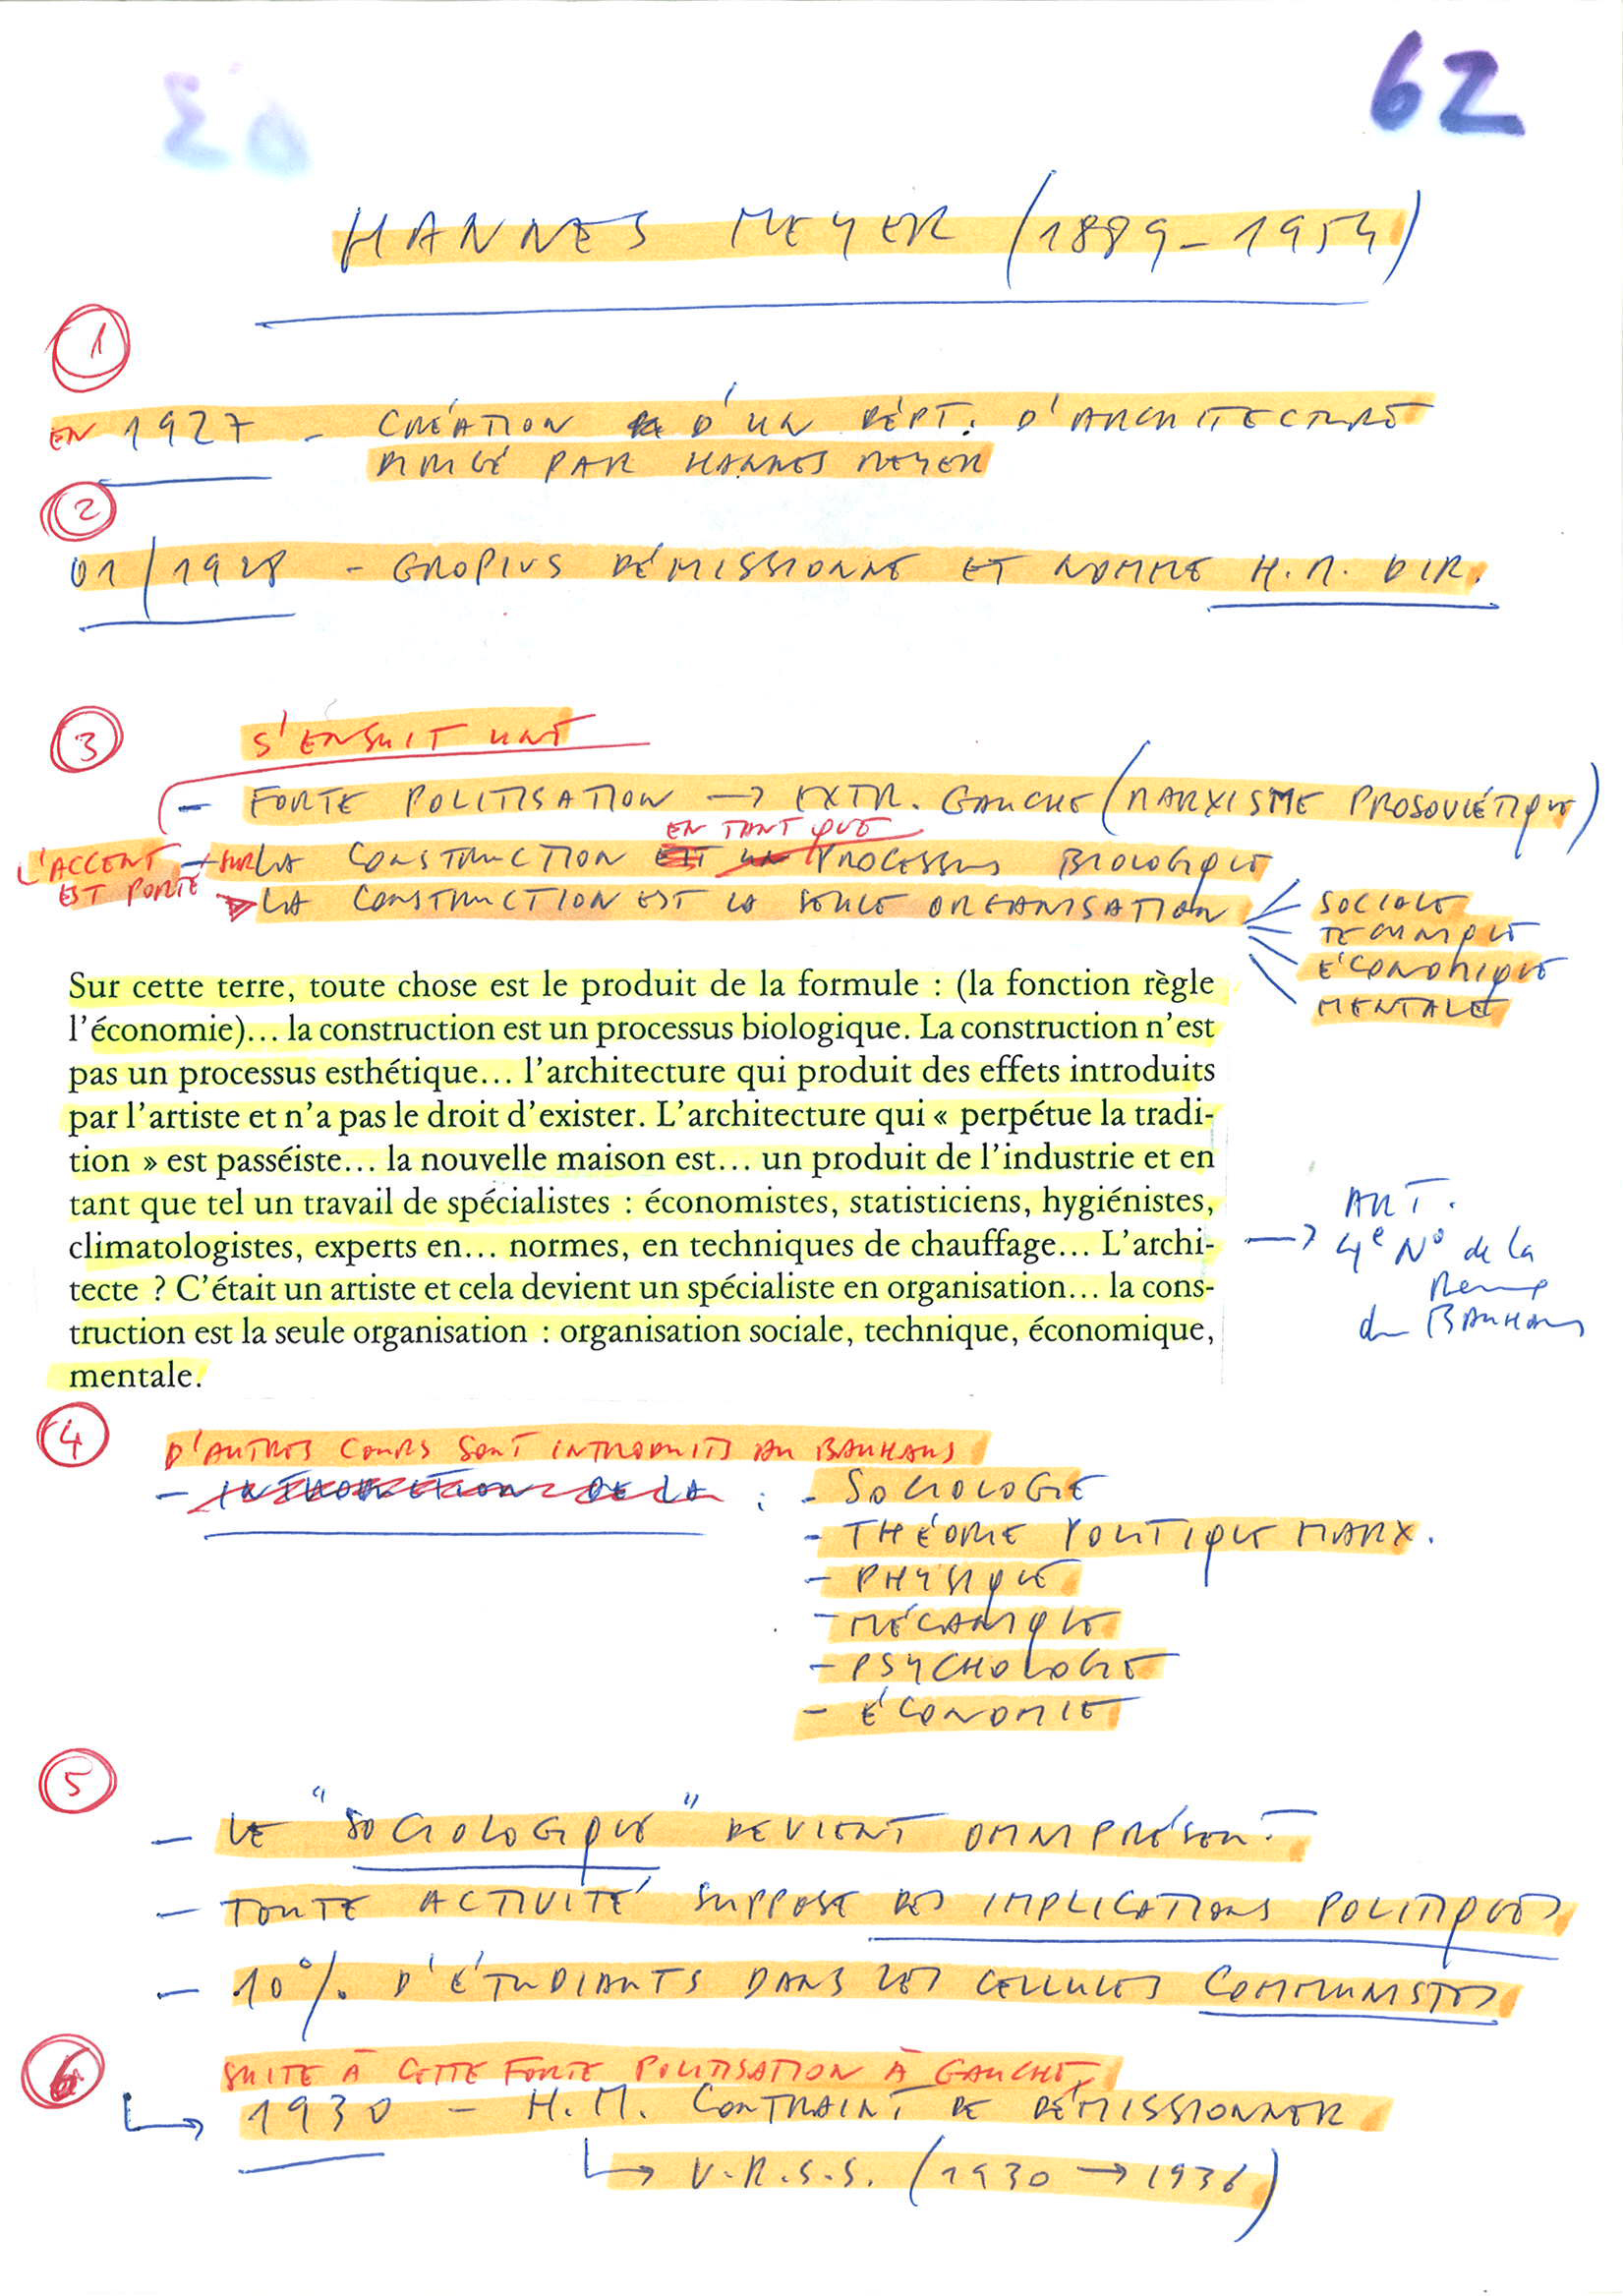 62
HANNES MEYER (1889-1954)
1
EN 1927 - CRÉATION D'UN DÉPT. D'ARCHITECTURE
DIRIGÉ PAR HANNES MEYER
2
01/1928 - GROPIUS DÉMISSIONNE ET NOMME H.M. DIR.
3
S'ENSUIT UNE
- FORTE POLITISATION → EXTR. GAUCHE (MARXISME PROSOVIÉTIQUE)
EN TANT QUE
L'ACCENT EST PORTÉ → SUR LA CONSTRUCTION PROCESSUS BIOLOGIQUE
LA CONSTRUCTION EST LA SEULE ORGANISATION
SOCIALE
TECHNIQUE
ÉCONOMIQUE
MENTALE
Sur cette terre, toute chose est le produit de la formule : (la fonction règle
l'économie)... la construction est un processus biologique. La construction n'est
pas un processus esthétique... l'architecture qui produit des effets introduits
par l'artiste et n'a pas le droit d'exister. L'architecture qui « perpétue la tradi-
tion » est passéiste... la nouvelle maison est... un produit de l'industrie et en
tant que tel un travail de spécialistes : économistes, statisticiens, hygiénistes,
climatologistes, experts en... normes, en techniques de chauffage... L'archi-
tecte ? C'était un artiste et cela devient un spécialiste en organisation... la cons-
truction est la seule organisation : organisation sociale, technique, économique,
mentale.
→ ART.
4e N° de la
Revue
du BAUHAUS
4
D'AUTRES COURS SONT INTRODUITS AU BAUHAUS
- INTRODUCTION DE LA :
- SOCIOLOGIE
- THÉORIE POLITIQUE MARX.
- PHYSIQUE
- MÉCANIQUE
- PSYCHOLOGIE
- ÉCONOMIE
5
- LE "SOCIOLOGIQUE" DEVIENT OMNIPRÉSENT
- TOUTE ACTIVITÉ SUPPOSE DES IMPLICATIONS POLITIQUES
- 10% D'ÉTUDIANTS DANS LES CELLULES COMMUNISTES
6
SUITE À CETTE FORTE POLITISATION À GAUCHE,
1930 - H.M. CONTRAINT DE DÉMISSIONNER
→ U.R.S.S. (1930 → 1936)